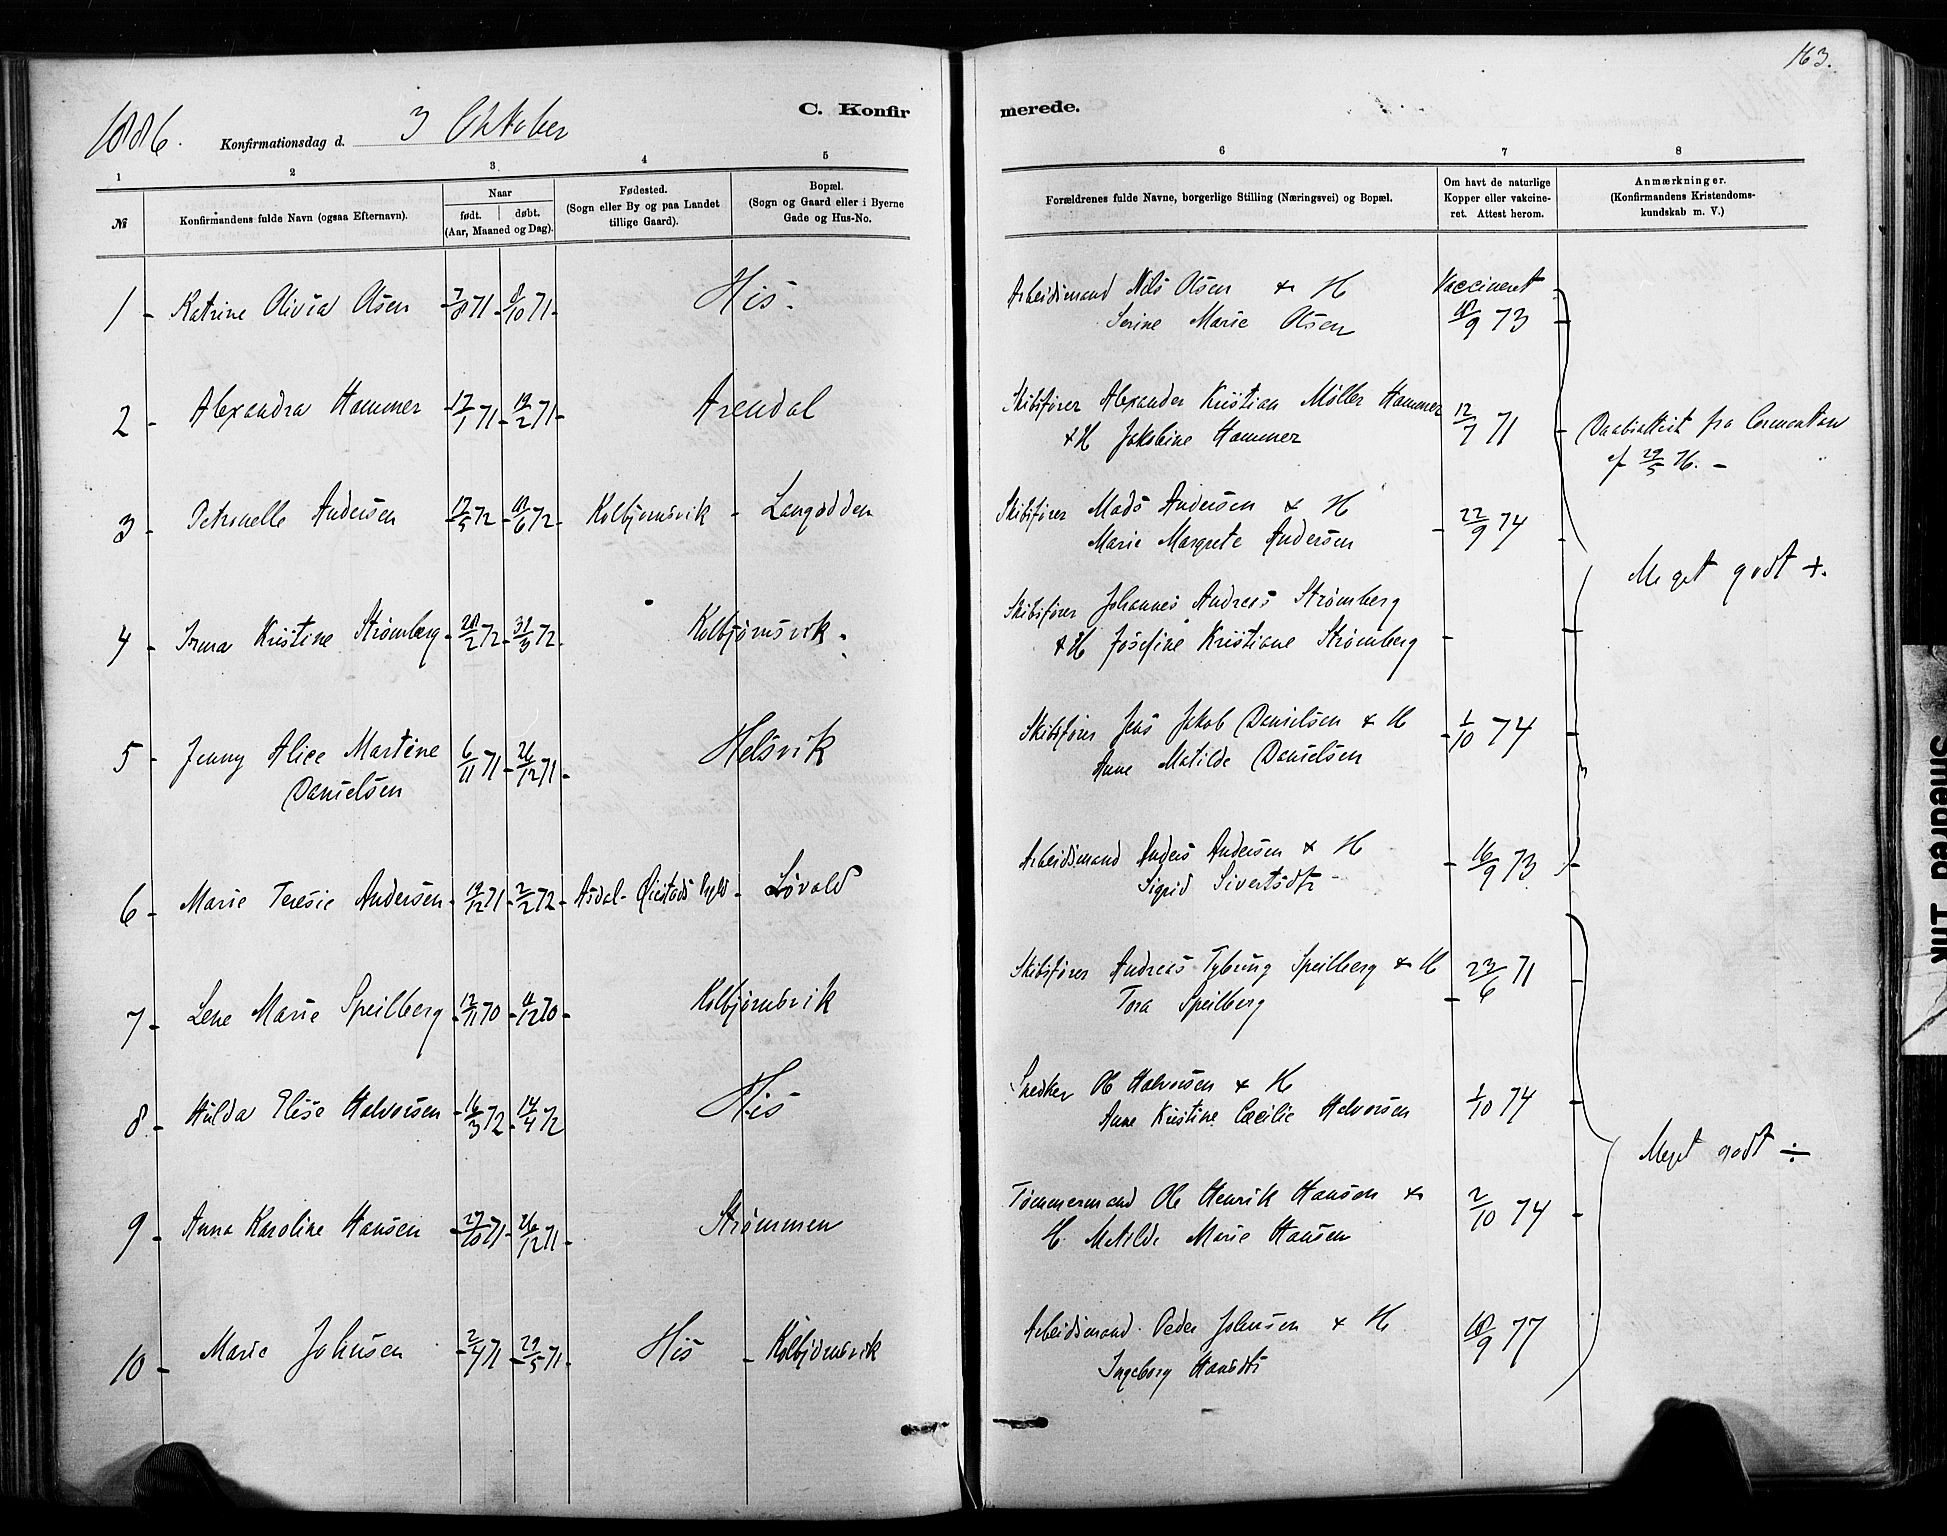 163.
1886. Konfirmationsdag d. 3 Oktober C. Konfir merede.
1 2 3. 4 5 6 7 8
№ Konfirmandens fulde Navn (ogsaa Efternavn). Naar født. døbt. (Aar, Maaned og Dag). Fødested. (Sogn eller By og paa Landet tillige Gaard). Bopæl. (Sogn og Gaard eller i Byerne Gade og Hus-No. Forældrenes fulde Navne, borgerlige Stilling (Næringsvei) og Bopæl. Om havt de naturlige Kopper eller vakcineret. Attest herom. Anmærkninger. (Konfirmandens Kristendomskundskab m. V.)
1 - Katrine Olivia Olsen 7/8 71 - 8/10 71 - His - Arbeidsmand Nils Olsen & H Vaccineret
Serine Marie Olsen 18/9 73
2 - Alexandra Hammer 17/1 71 - 19/2 71 - Arendal Skibsfører Alexander Kristian Møller Hammer 12/7 71 - Daabsattest fra
& H Jakobine Hammer af 29/5 76. -
3 - Petronelle Andersen 17/5 72 - 18/6 72 - Kolbjørnsvik - Langodden Skibsfører Mads Andersen & H
Marie Margrete Andersen - 22/9 74
Meget godt +.
4 - Irma Kristine Strømberg - 28/2 72 - 31/3 72 - Kolbjørnsvik - Skibsfører Johannes Andreas Strømberg
& H Josefine Kristiane Strømberg -
5 - Jenny Alice Martine 6/11 71 - 26/12 71 - Helsvik Skibsfører Jens Jakob Danielsen & H - 1/10 74
Danielsen Anne Matilde Danielsen
6 - Marie Teresie Andersen - 19/12 71 - 2/2 72 - Asdal - Øiestads Pgld - Løvold Arbeidsmand Anders Andersen & H - 16/9 73
Sigrid Sivertsdtr
7 - Lene Marie Speilberg 17/11 70 - 11/12 70 - Kolbjørnsvik Skibsfører Andreas Speilberg & H 23/6 71
Tora Speilberg
8 - Hulda Elise Halvorsen - 16/3 72 - 14/4 72 His Snedker Ole Halvorsen & H 1/10 74
Anne Kristine Cæcilie Halvorsen
Meget godt ÷
9 - Anna Karoline Hansen - 27/10 71 - 26/12 71 - Strømmen Tømmermand Ole Henrik Hansen & 2/10 74
H. Matilde Marie Hansen
10 - Marie Johnsen - 2/4 71 - 29/5 71 - His - Kolbjørnsvik Arbeidsmand Peder Johnsen & H 18/9 77
Ingeborg Hansdtr